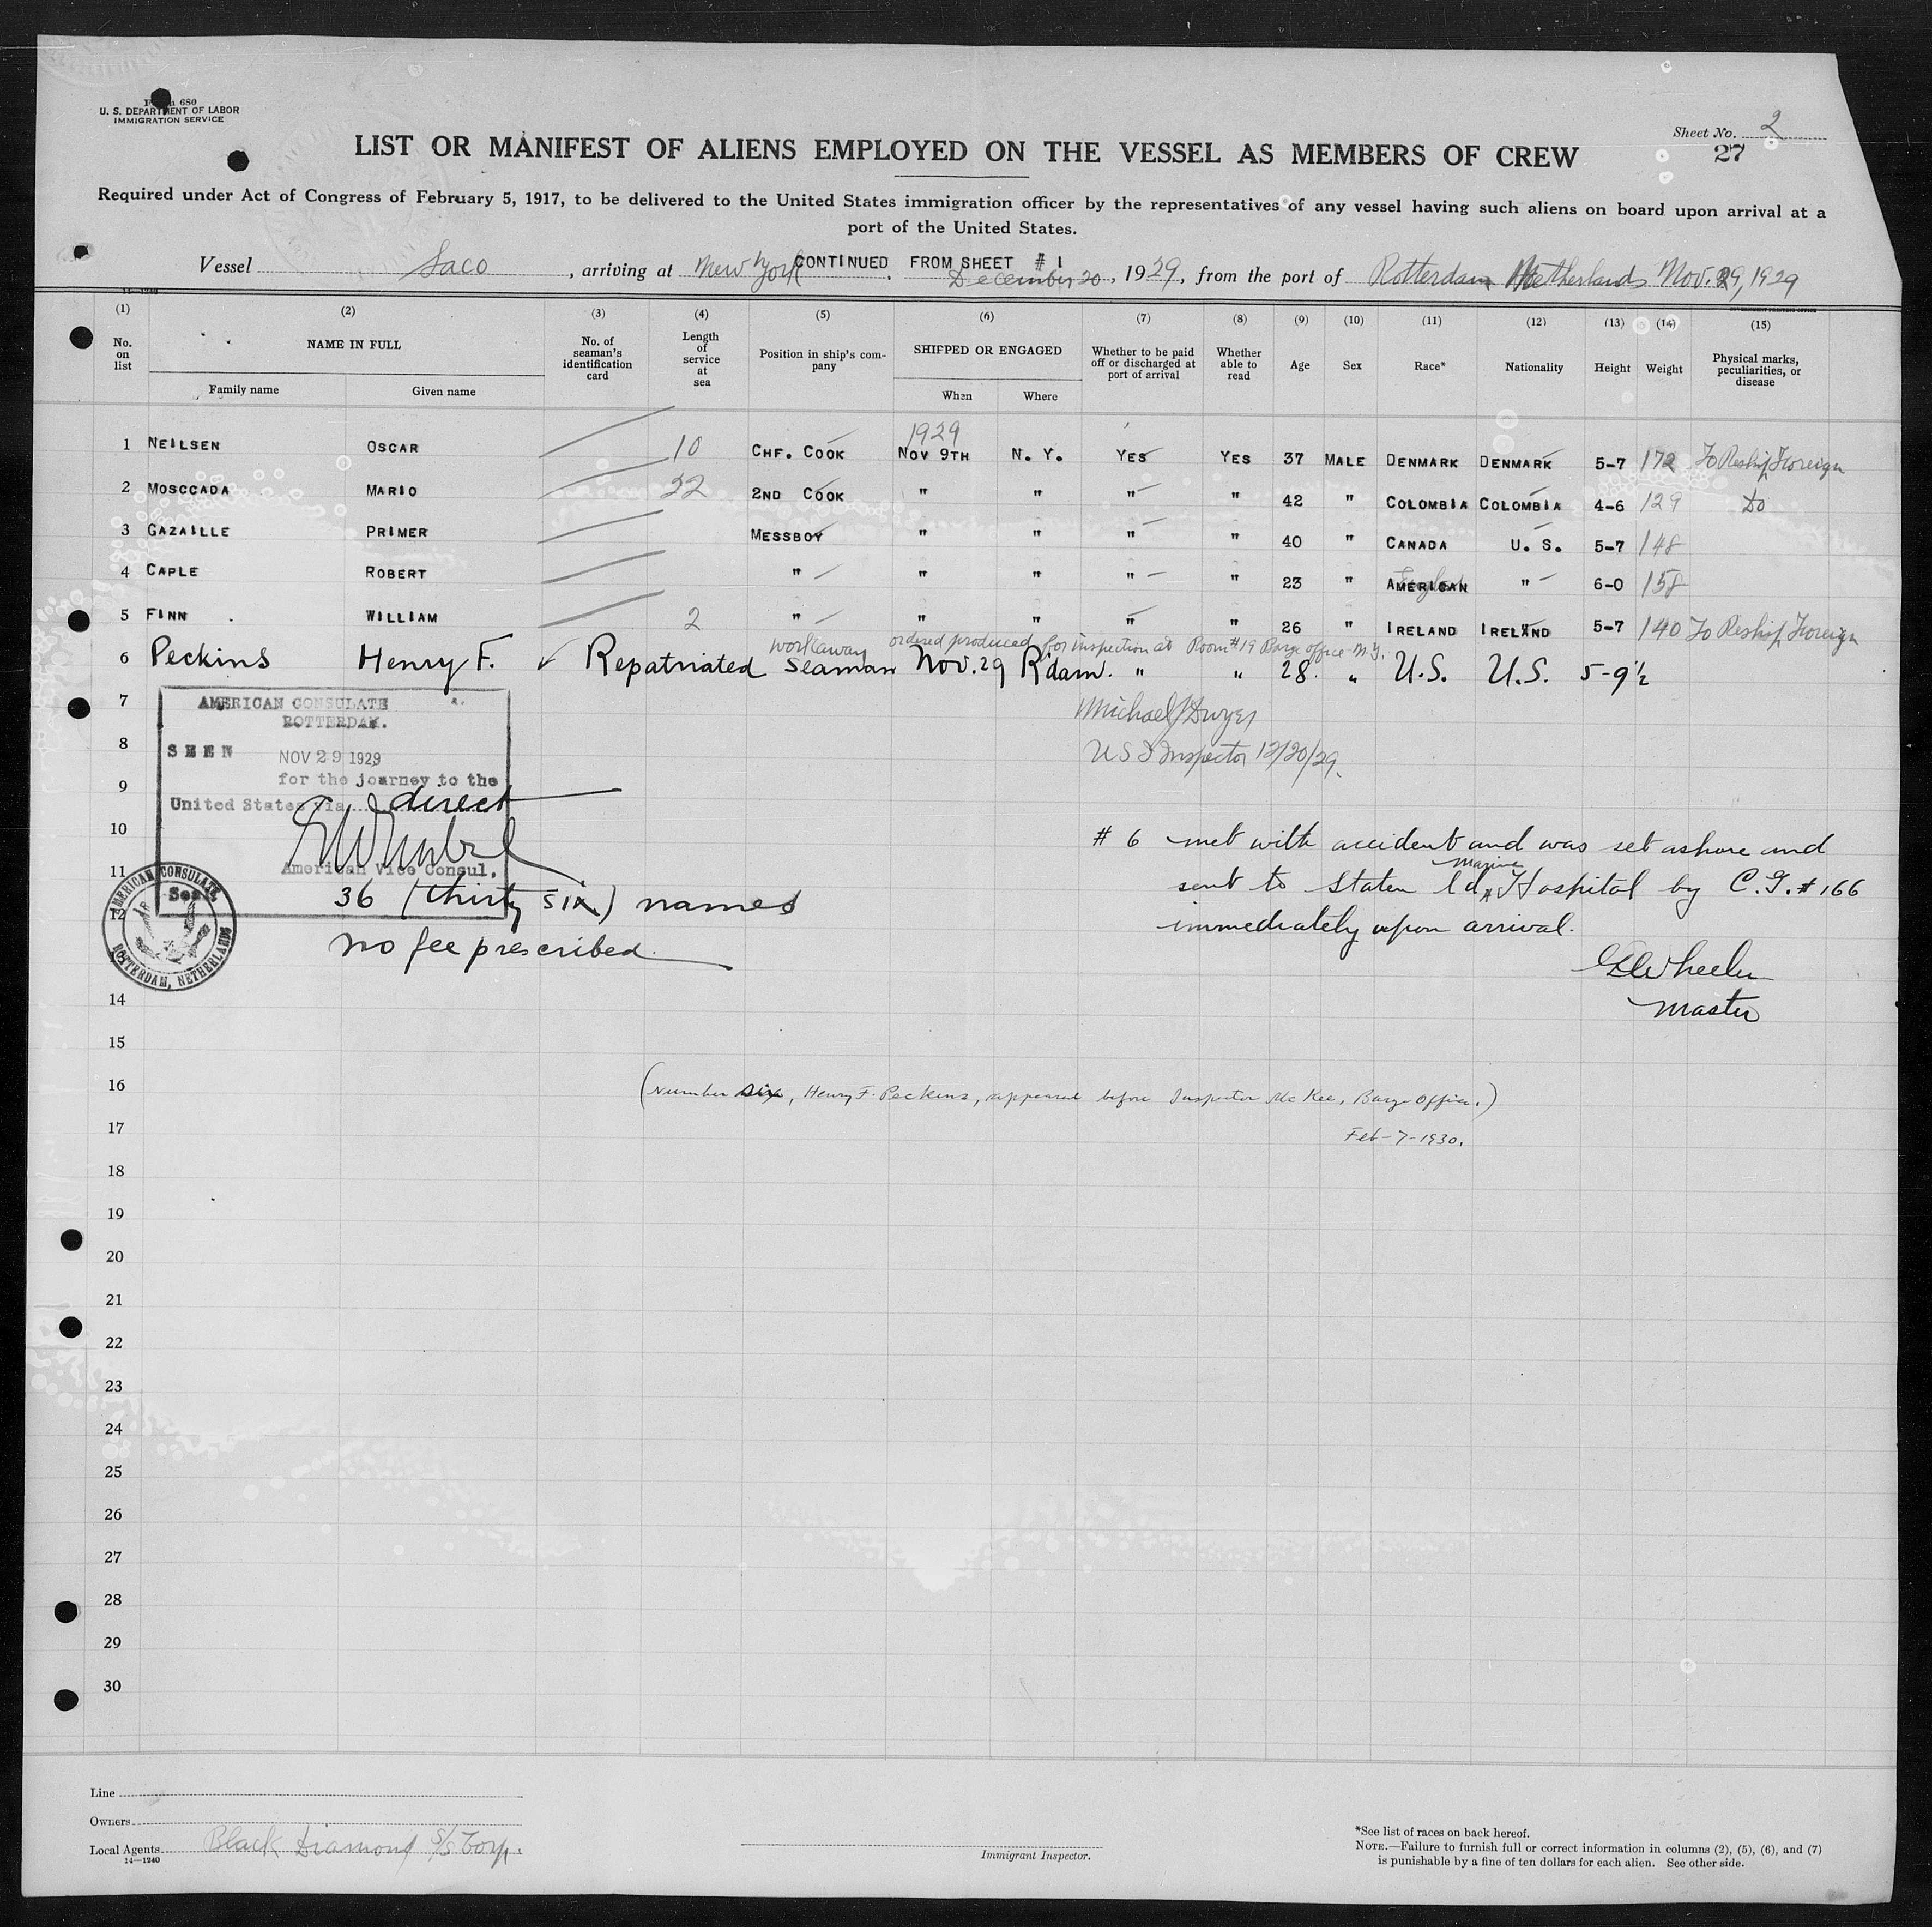 Form 680
U. S. DEPARTMENT OF LABOR
IMMIGRATION SERVICE
Sheet No. 2
27
LIST OR MANIFEST OF ALIENS EMPLOYED ON THE VESSEL AS MEMBERS OF CREW
Required under Act of Congress of February 5, 1917, to be delivered to the United States immigration officer by the representatives of any vessel having such aliens on board upon arrival at a
port of the United States.
CONTINUED FROM SHEET # 1
Vessel Saco, arriving at New York December 20, 1929, from the port of Rotterdam Netherlands Nov. 29, 1929
(1) (2) (3) (4) (5) (6) (7) (8) (9) (10) (11) (12) (13) (14) (15)
No. on list NAME IN FULL Family name Given name No. of seaman's identification card Length of service at sea Position in ship's company SHIPPED OR ENGAGED When Where Whether to be paid off or discharged at port of arrival Whether able to read Age Sex Race* Nationality Height Weight Physical marks, peculiarities, or disease
1929
1 NEILSEN OSCAR 10 CHF. COOK NOV 9TH N. Y. YES YES 37 MALE DENMARK DENMARK 5-7 172 To Reship Foreign
2 MOSCCADA MARIO 22 2ND COOK " " " " 42 " COLOMBIA COLOMBIA 4-6 129 Do
3 GAZAILLE PRIMER MESSBOY " " " " 40 " CANADA U. S. 5-7 148
4 CAPLE ROBERT " " " " " 23 " AMERICAN " 6-0 158
5 FINN WILLIAM 2 " " " " " 26 " IRELAND IRELAND 5-7 140 To Reship Foreign
workaway ordered produced for inspection at Room #19 Barge office N.Y.
6 Peckins Henry F. ✓ Repatriated Seaman Nov. 29 R'dam. " " 28. " U.S. U.S. 5-9½
7
8
9
10
11
12
14
15
16
17
18
19
20
21
22
23
24
25
26
27
28
29
30
AMERICAN CONSULATE
ROTTERDAM.
SEEN
NOV 29 1929
for the journey to the
United States via direct
American Vice Consul.
36 (thirty six) names
no fee prescribed.
AMERICAN CONSULATE
ROTTERDAM, NETHERLANDS
Michael J Dwyer
U S I Inspector 12/20/29.
# 6 met with accident and was set ashore and
sent to Staten Id. Marine Hospital by C. G. # 166
immediately upon arrival.
Wheeler
Master
(Number six, Henry F. Peckins, appeared before Inspector McKee, Barge Office.)
Feb-7-1930.
Line
Owners
Local Agents Black Diamond S/S Corp.
14—1240
Immigrant Inspector.
*See list of races on back hereof.
NOTE.—Failure to furnish full or correct information in columns (2), (5), (6), and (7)
is punishable by a fine of ten dollars for each alien. See other side.